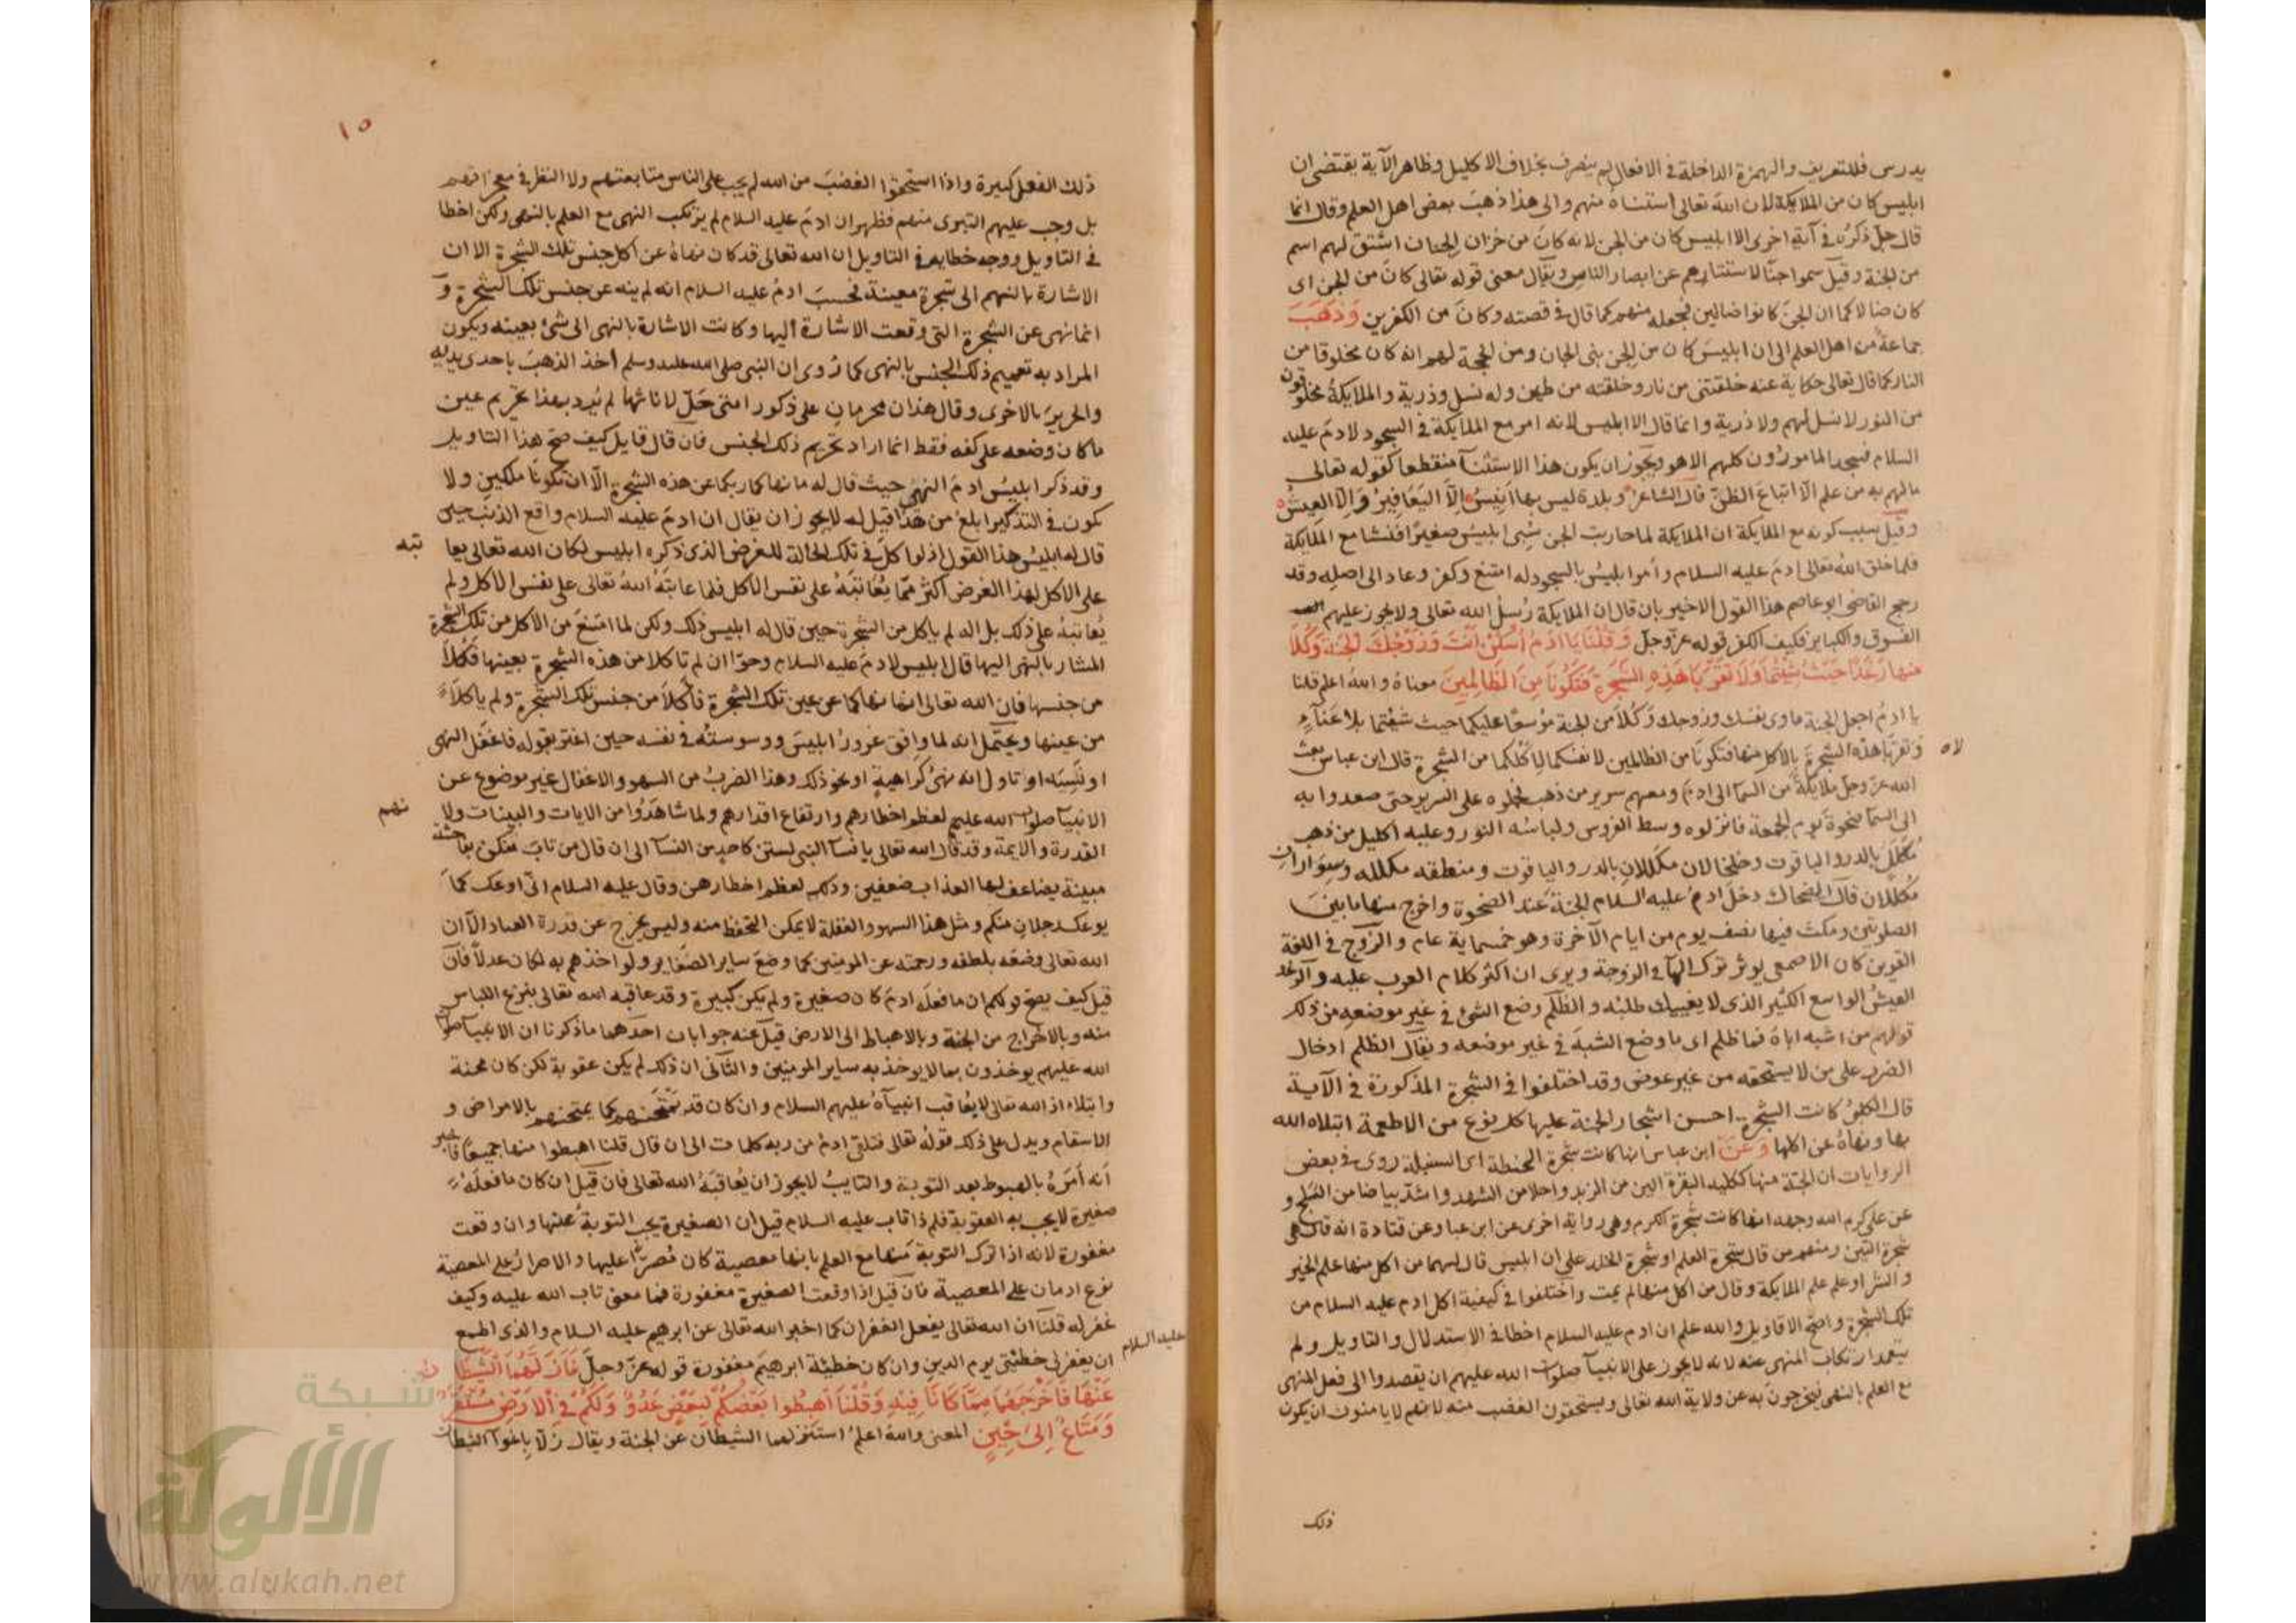 يدرس فللتعريف والهمزة الداخلة في الافعال لم ينصرف بخلاف الاكليل وظاهر الآية يقتضى ان
ابليس كان من الملايكة لان الله تعالى استثناه منهم والى هذا ذهب بعض اهل العلم وقال انما
قال جل ذكره في آية اخرى الا ابليس كان من الجن لانه كان من خزان الجنان اشتق لهم اسم
من الجنة وقيل سموا جنا لاستتارهم عن ابصار الناس ويقال معنى قوله تعالى كان من الجن اى
كان ضالا كما ان الجن كانوا ضالين فجعله منهم كما قال في قصته وكان من الكفرين وذهب
جماعة من اهل العلم الى ان ابليس كان من الجن بنى الجان ومن الحجة لهم انه كان مخلوقا من
النار كما قال تعالى حكاية عنه خلقتنى من نار وخلقته من طين وله نسل وذرية والملايكة مخلوقون
من النور لا نسل لهم ولا ذرية وانما قال الا ابليس لانه امر مع الملايكة في السجود لادم عليه
السلام فسجد المامورون كلهم الا هو ويجوز ان يكون هذا الاستثنآ منقطعا كقوله تعالى
مالهم به من علم الا اتباع الظن قال الشاعر وبلدة ليس بها انيس الا اليعافير والا العيس
وقيل سبب كونه مع الملايكة ان الملايكة لما حاربت الجن سبى ابليس صغيرا فنشا مع الملايكة
فلما خلق الله تعالى ادم عليه السلام وأمر ابليس بالسجود له امتنع وكفر وعاد الى اصله وقد
رجح القاضى ابو عاصم هذا القول الاخير بان قال ان الملايكة رسل الله تعالى ولا يجوز عليهم
الفسوق والكباير فكيف الكفر قوله عز وجل وقلنا يا ادم اسكن انت وزوجك الجنة وكلا
منها رغدا حيث شئتما ولا تقربا هذه الشجرة فتكونا من الظالمين معناه والله اعلم قلنا
يا ادم اجعل الجنة ماوى نفسك وزوجك وكلا من الجنة موسعا عليكما حيث شئتما بلا عنآء
لا
وتقربا هذه الشجرة بالاكل منها فتكونا من الظالمين لانفسكما لأكلكما من الشجرة قال ابن عباس بعث
الله عز وجل ملايكة من السمآ الى ادم ومعهم سرير من ذهب فحملوه على السرير حتى صعدوا به
الى السمآ ضحوة يوم الجمعة فانزلوه وسط الفردوس ولباسه النور وعليه اكليل من ذهب
مكلل بالدر والياقوت وخلخالان مكللان بالدر والياقوت ومنطقه مكلله وسواران
مكللان قال الضحاك دخل ادم عليه السلام الجنة عند الضحوة واخرج منها ما بين
الصلوتين ومكث فيها نصف يوم من ايام الآخرة وهو خمسماية عام والزوج في اللغة
القرين كان الاصمعى يوثر ترك الهآ في الزوجة ويرى ان اكثر كلام العرب عليه والرغد
العيش الواسع الكثير الذى لا يعييك طلبه والظلم وضع الشئ في غير موضعه من ذلك
قولهم من اشبه اباه فما ظلم اى ما وضع الشبه في غير موضعه ويقال الظلم ادخال
الضرر على من لا يستحقه من غير عوض وقد اختلفوا في الشجرة المذكورة في الآية
قال الكلبى كانت الشجرة احسن اشجار الجنة عليها كل نوع من الاطعمة ابتلاه الله
بها ونهاه عن اكلها وعن ابن عباس انها كانت شجرة الحنطة اى السنبلة روى في بعض
الروايات ان الحبة منها ككلية البقرة الين من الزبد واحلا من الشهد واشد بياضا من الثلج و
عن على كرم الله وجهه انها كانت شجرة الكرم وهى رواية اخرى عن ابن عبا وعن قتادة انه قال هى
شجرة التين ومنهم من قال شجرة العلم او شجرة الخلد على ان ابليس قال لهما من اكل منها علم الخير
والشر او علم علم الملايكة وقال من اكل منها لم يمت واختلفوا في كيفية اكل ادم عليه السلام من
تلك الشجرة واصح الاقاويل والله علم ان ادم عليه السلام اخطا في الاستدلال والتاويل ولم
يتعمد ارتكاب المنهى عنه لانه لا يجوز على الانبيآ صلوات الله عليهم ان يقصدوا الى فعل المنهى
مع العلم بالنهى فيخرجون به عن ولاية الله تعالى ويستحقون الغضب منه لانهم لا يامنون ان يكون
ذلك
١٥
ذلك الفعل كبيرة واذا استحقوا الغضب من الله لم يجب على الناس متابعتهم ولا النظر في معجزاتهم
بل وجب عليهم التبرى منهم فظهر ان ادم عليه السلام لم يرتكب النهى مع العلم بالنهى ولكن اخطا
في التاويل ووجه خطايه في التاويل ان الله تعالى قد كان نهاه عن اكل جنس تلك الشجرة الا ان
الاشارة بالنهى الى شجرة معينة فحسب ادم عليه السلام انه لم ينه عن جنس تلك الشجرة و
انما نهى عن الشجرة التى وقعت الاشارة اليها وكانت الاشارة بالنهى الى شئ بعينه ويكون
المراد به تعميم ذلك الجنس بالنهى كما روى ان النبى صلى الله عليه وسلم أخذ الذهب باحدى يديه
والحرير بالاخرى وقال هذان محرمان على ذكور امتى حل لاناثها لم يرد بهذا تحريم عين
ما كان وضعه على كفه فقط انما اراد تحريم ذلك الجنس فان قال قايل كيف صح هذا التاويل
وقد ذكر ابليس ادم النهى حيث قال له ما نهاكما ربكما عن هذه الشجرة الا ان تكونا ملكين ولا
يكون في التذكير ابلغ من هذا قيل له لا يجوز ان يقال ان ادم عليه السلام واقع الذنب حين
قال له ابليس هذا القول اذ لو اكل في تلك الحالة للغرض الذى ذكره ابليس لكان الله تعالى يعا
تبه
على الاكل لهذا الغرض اكثر مما يعاتبه على نفس الاكل فلما عاتبه الله تعالى على نفس الاكل ولم
يعاتبه على ذلك بل انه لم ياكل من الشجرة حين قال له ابليس ذلك ولكن لما امتنع من الاكل من تلك الشجرة
المشار بالنهى اليها قال ابليس لادم عليه السلام وحوا ان لم تاكلا من هذه الشجرة بعينها فكلا
من جنسها فان الله تعالى انما نهاكما عن عين تلك الشجرة فأكلا من جنس تلك الشجرة ولم ياكلا
من عينها ويحتمل انه لما وافق غرور ابليس ووسوسته في نفسه حين اغتر بقوله فاغفل النهى
او نسيه او تاول انه نهى كراهية او نحو ذلك وهذا الضرب من السهو والاغفال غير موضوع عن
الانبيآ صلوات الله عليهم لعظم اخطارهم وارتفاع اقدارهم ولما شاهدوا من الايات والبينات ولا
نهم
القدرة والايمة وقد قال الله تعالى يا نسآ النبى لستن كاحد من النسآ الى ان قال من يات منكن بفاحشة
مبينة يضاعف لها العذاب ضعفين وذلك لعظم اخطارهن وقال عليه السلام انى اوعك كما
يوعك رجلان منكم ومثل هذا السهو والغفلة لا يمكن التحفظ منه وليس يخرج عن قدرة العباد الا ان
الله تعالى وضعه بلطفه ورحمته عن المومنين كما وضع ساير الصغاير ولو اخذهم به لكان عدلا فان
قيل كيف يصح قولكم ان ما فعله ادم كان صغيرة ولم يكن كبيرة وقد عاقبه الله تعالى بنزع اللباس
منه وبالاخراج من الجنة وبالاهباط الى الارض قيل عنه جوابان احدهما ما ذكرنا ان الانبيآ صلوات
الله عليهم يوخذون بما لا يوخذ به ساير المومنين والثانى ان ذلك لم يكن عقوبة لكن كان محنة
وابتلاء اذ الله تعالى لا يعاقب انبيآه عليهم السلام وان كان قد يمتحنهم كما يمتحنهم بالامراض و
الاسقام ويدل على ذلك قوله تعالى فتلقى ادم من ربه كلمات الى ان قال قلنا اهبطوا منها جميعا فاخبر
انه أمره بالهبوط بعد التوبة والتايب لا يجوز ان يعاقبه الله تعالى فان قيل ان كان ما فعله
صغيرة لا يجب به العقوبة فلم ذا تاب عليه السلام قيل ان الصغيرة يجب التوبة عنها وان وقعت
مغفورة لانه اذا ترك التوبة منها مع العلم بانها معصية كان مصرا عليها والاصرار على المعصية
نوع ادمان على المعصية فان قيل اذا وقعت الصغيرة مغفورة فما معنى تاب الله عليه وكيف
غفر له قلنا ان الله تعالى يفعل الغفران كما اخبر الله تعالى عن ابرهيم عليه السلام والذى اطمع
ان يغفر لى خطيئتى يوم الدين وان كان خطيئة ابرهيم مغفورة قوله عز وجل فازلهما الشيطان
عليه السلام
عنها فاخرجهما مما كانا فيه وقلنا اهبطوا بعضكم لبعض عدو ولكم في الارض مستقر
ومتاع الى حين المعنى والله اعلم استنزلهما الشيطان عن الجنة ويقال زلا باغوآ الشيطان
شبكة
الألوكة
www.alukah.net